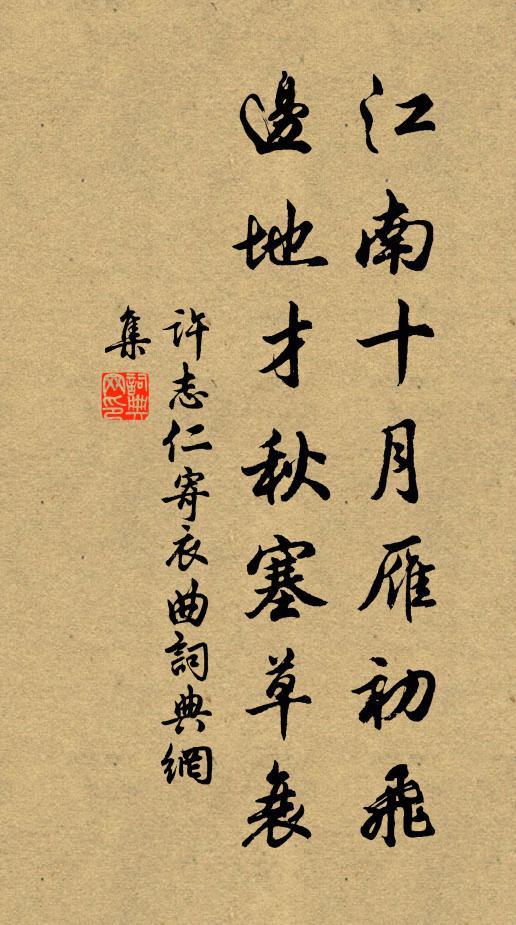 江南十月雁初飛
邊地才秋塞草衰
許志仁寄衣曲詞典網
集
詞典
网印